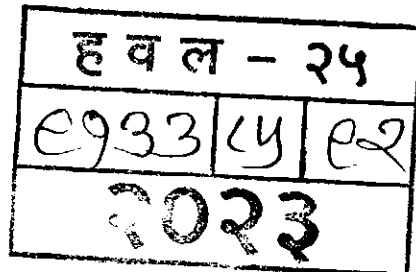 ह व ल - २५
९१३३ ८५ ९२
२०२३